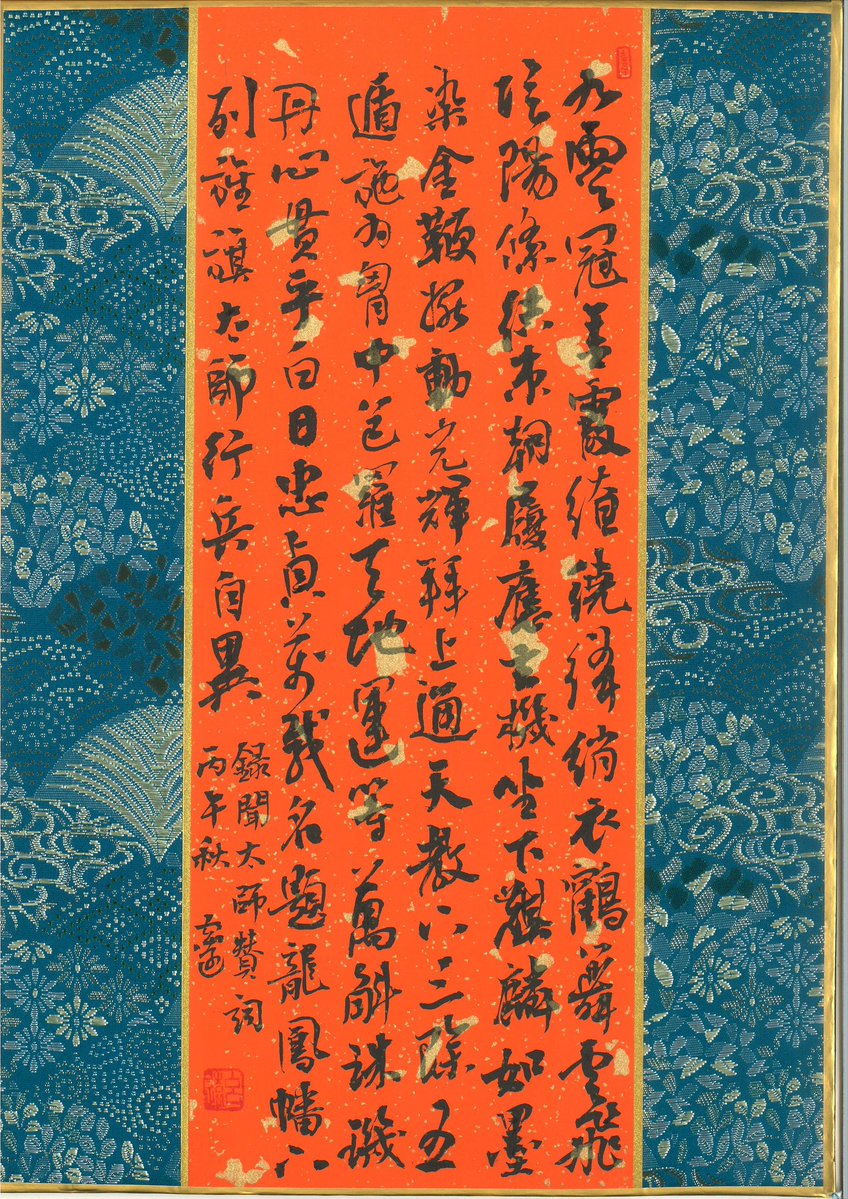 九雲冠金霞繚繞絳綃衣鶴舞雲飛
陰陽絛結束朝履應玄機坐下麒麟如墨
染金鞭擺動光輝拜上通天教下三除五
遁施為胸中包羅天地運籌萬斛珠璣
丹心貫乎白日忠貞萬載名題龍鳳幡下
列旌旗太師行兵自異
錄聞大師贊詞
丙午秋